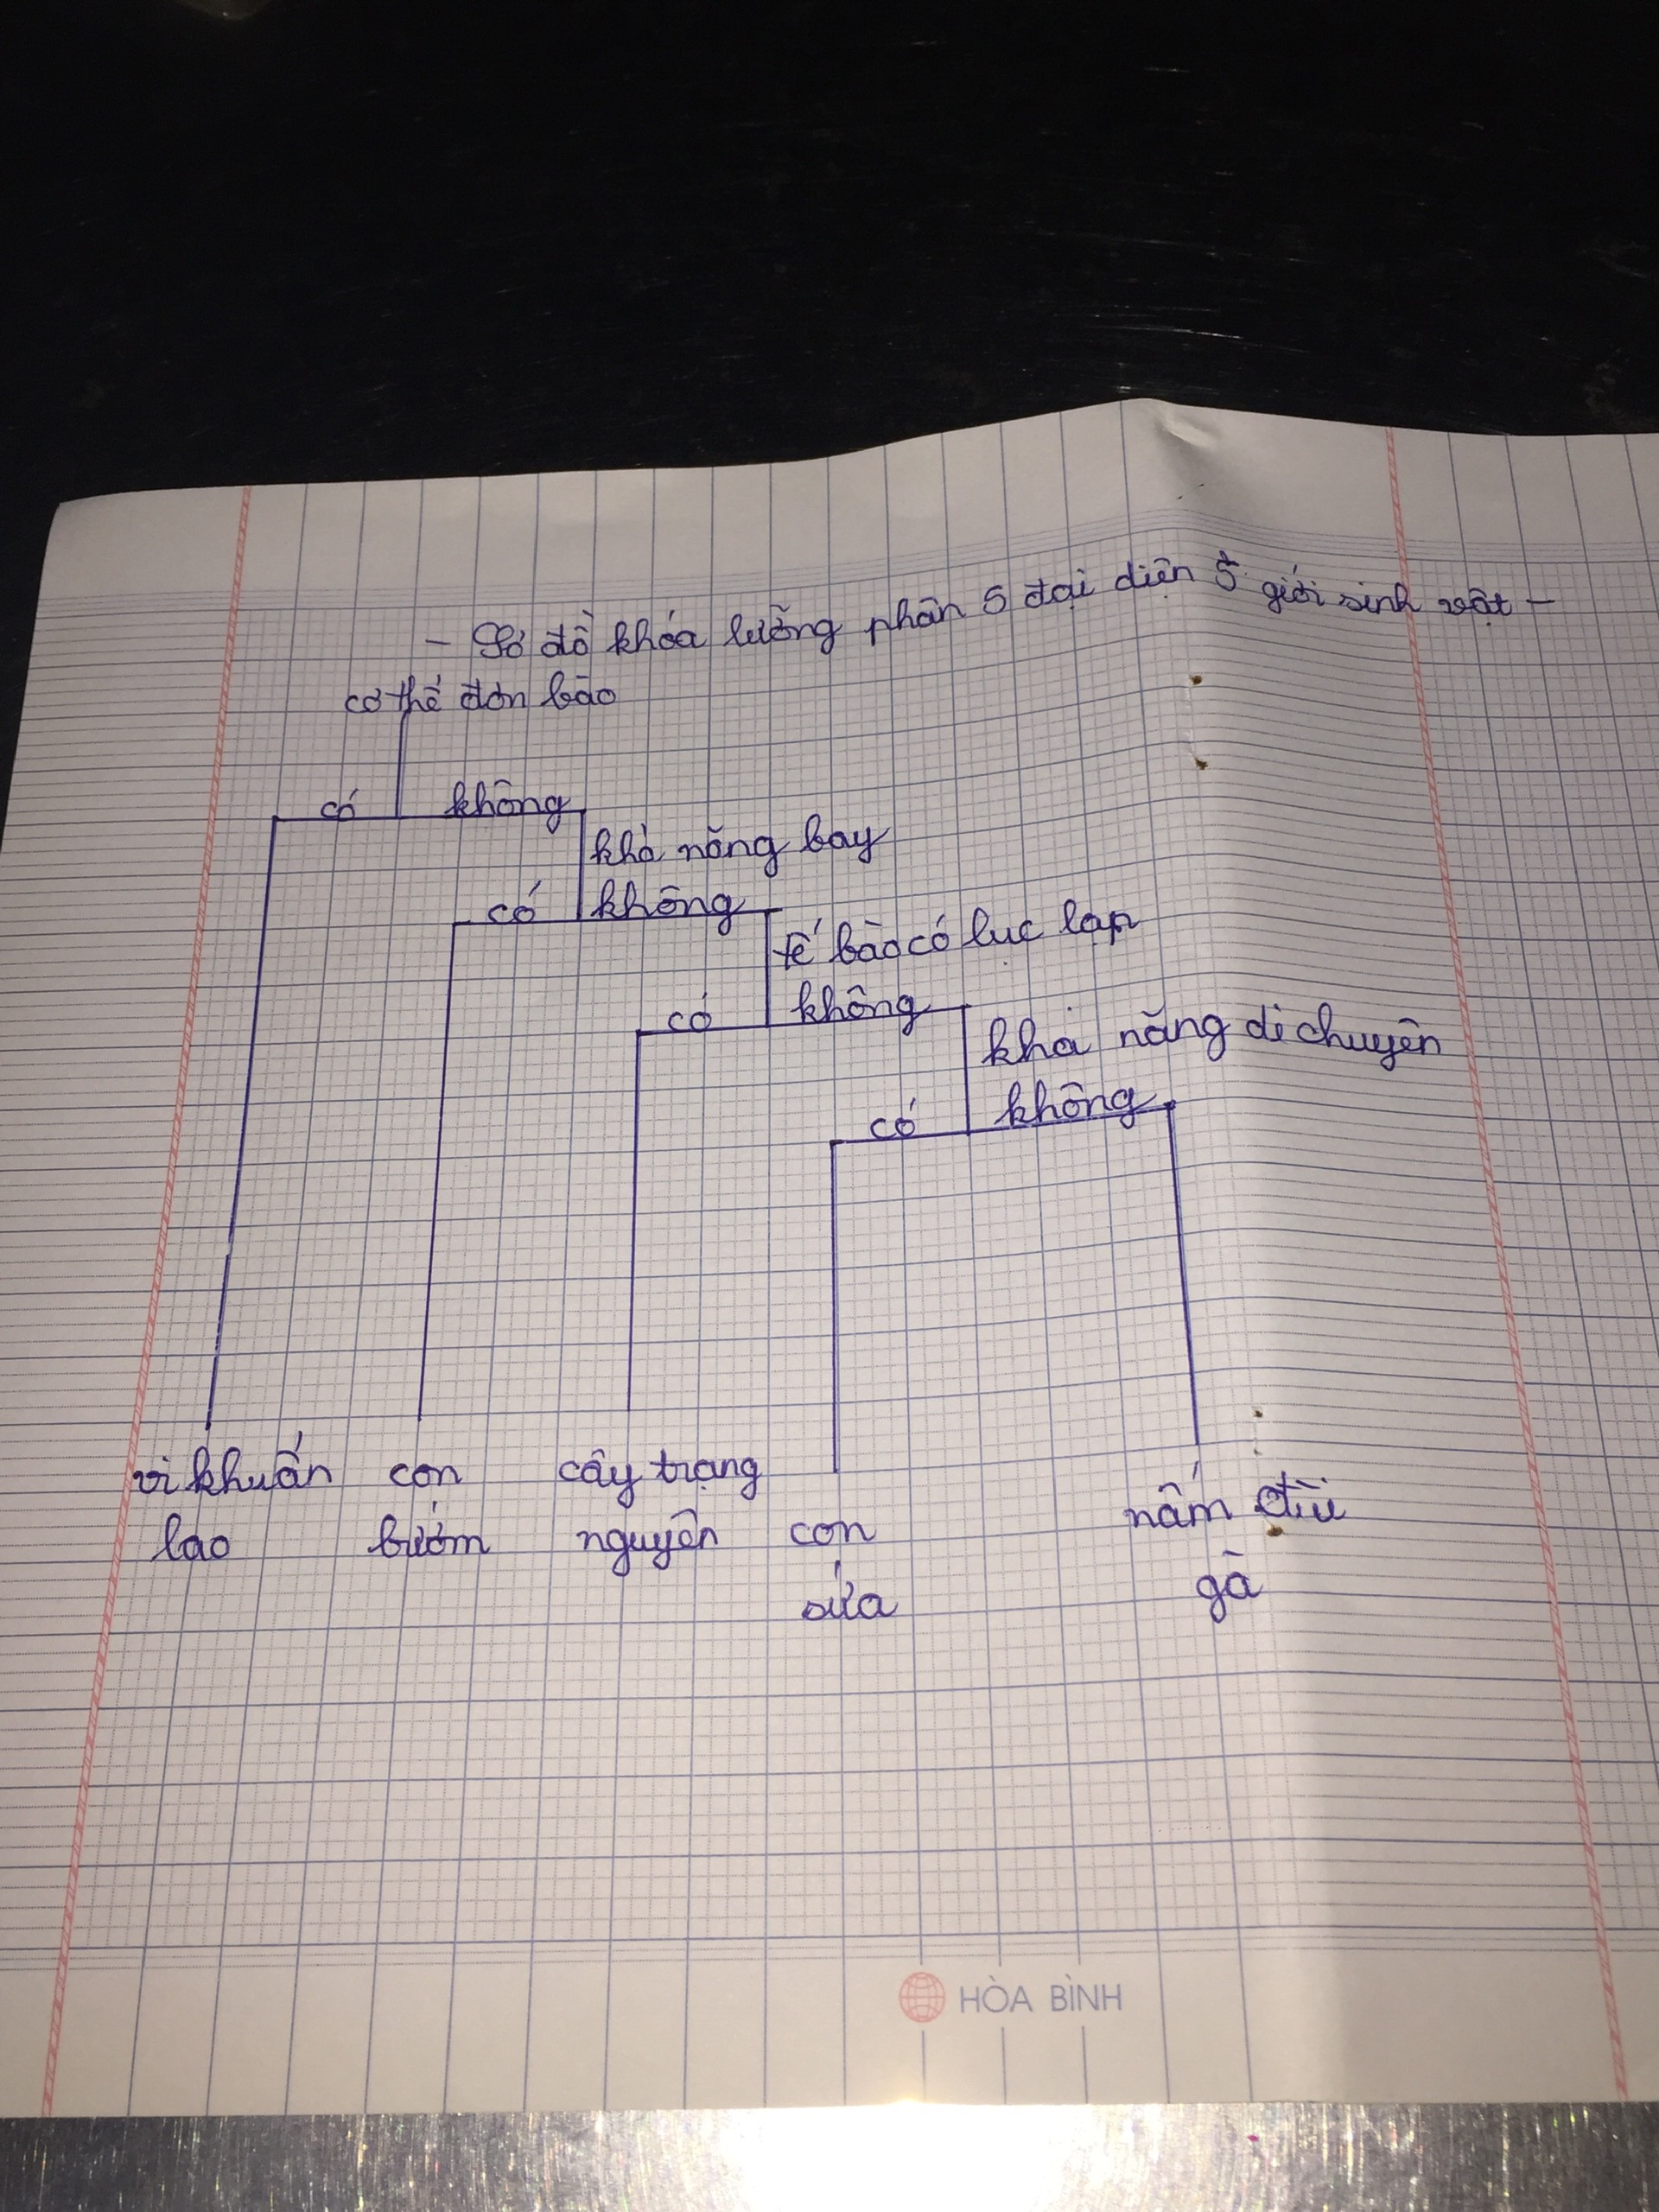 - Sơ đồ khóa lưỡng phân 5 đại diện 5 giới sinh vật -
cơ thể đơn bào
có không
khả năng bay
có không
tế bào có lục lạp
có không
khả năng di chuyển
có không
vi khuẩn con cây trạng nấm đùi
lao bướm nguyên con gà
sứa
HÒA BÌNH